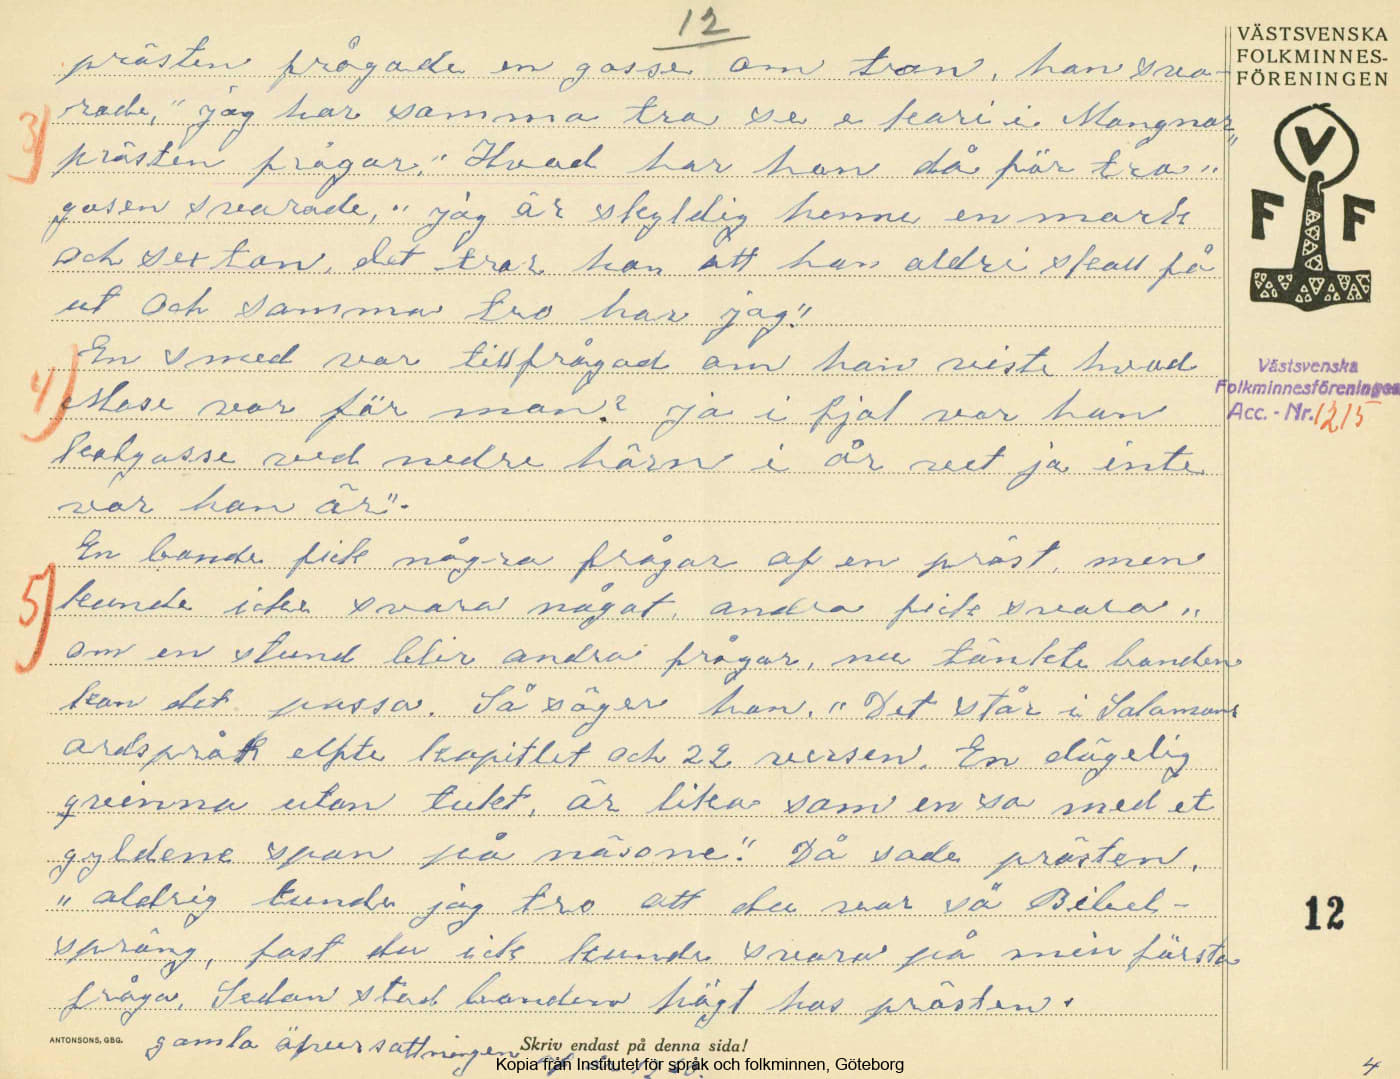 12
prästen frågade en gosse om tron, han sva-
rade, " jag har samma tro se e kari i Mangnar"
prästen frågar, " Hvad har hon då för tro "
gosen svarade, " jag är skyldig henne en mark
och sexton, det tror hon att hon aldri skall få
ut och samma tro har jag."
En smed var tillfrågad om han viste hvad
Mose var för man? ja i fjol var han
kolgosse ved nedre härn i år vet ja inte
var han är".
En bonde fick några frågor af en präst, men
kunde icke svara något, andra fick svara "
om en stund blir andra frågor, nu tänkte bonden
kan det passa. Så säger han. " Det står i Salomons
ardspråk elfte kapitlet och 22 versen. En dägelig
qvinna utan tukt, är lika som en so med et
gyldene span på näsone". Då sade prästen,
" aldrig kunde jag tro att du var så Bibel-
språng, fast du ick kunde svara på min första
fråga. Sedan stod bonden högt hos prästen.
gamla äfversattningen
3)
4)
5)
VÄSTSVENSKA
FOLKMINNES-
FÖRENINGEN
V
F F
Västsvenska
Folkminnesföreningen
Acc. - Nr. 1215
12
ANTONSONS, GBG.
Skriv endast på denna sida!
Kopia från Institutet för språk och folkminnen, Göteborg
4